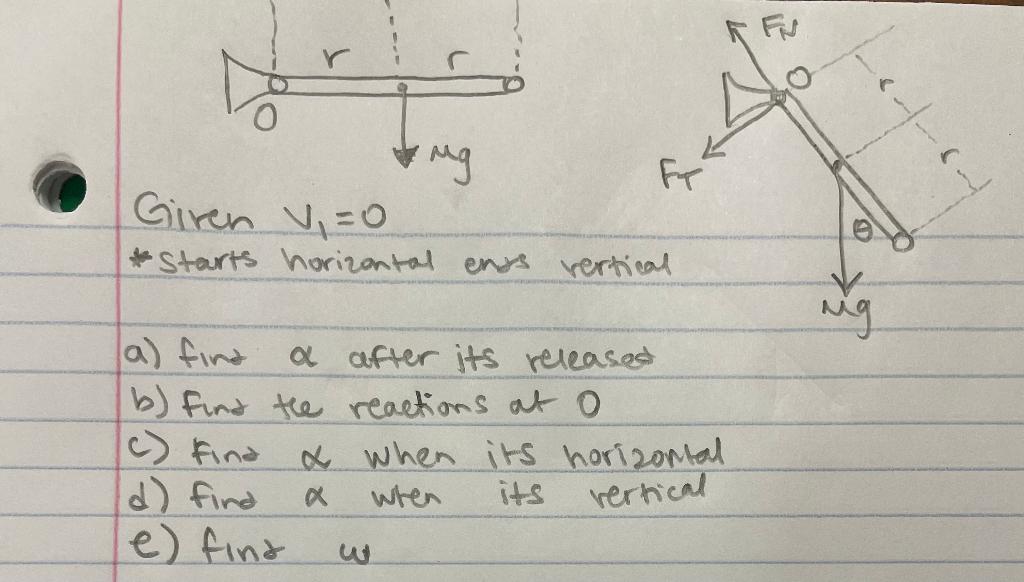 r r
O
Mg
FN
O
r
r
FT
θ
Mg
Given V₁=0
*starts horizontal ends vertical
a) find α after its released
b) find the reactions at O
c) find α when its horizontal
d) find α when its vertical
e) find ω